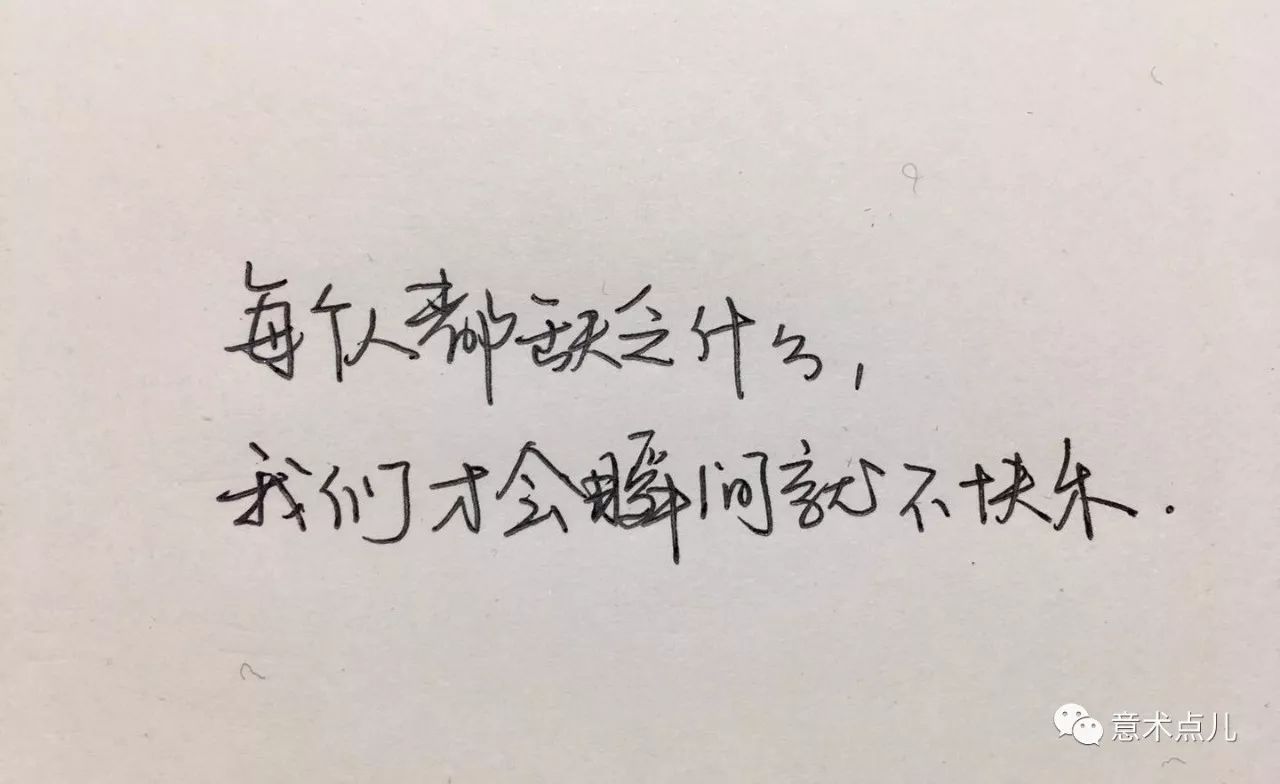 每个人都缺乏什么，
我们才会瞬间就不快乐.
意术点儿